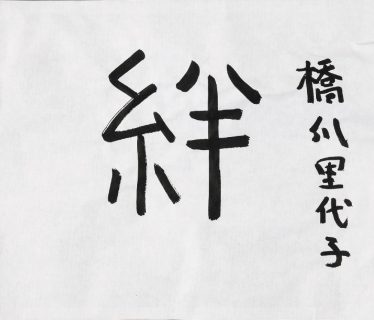 絆
橋爪里代子